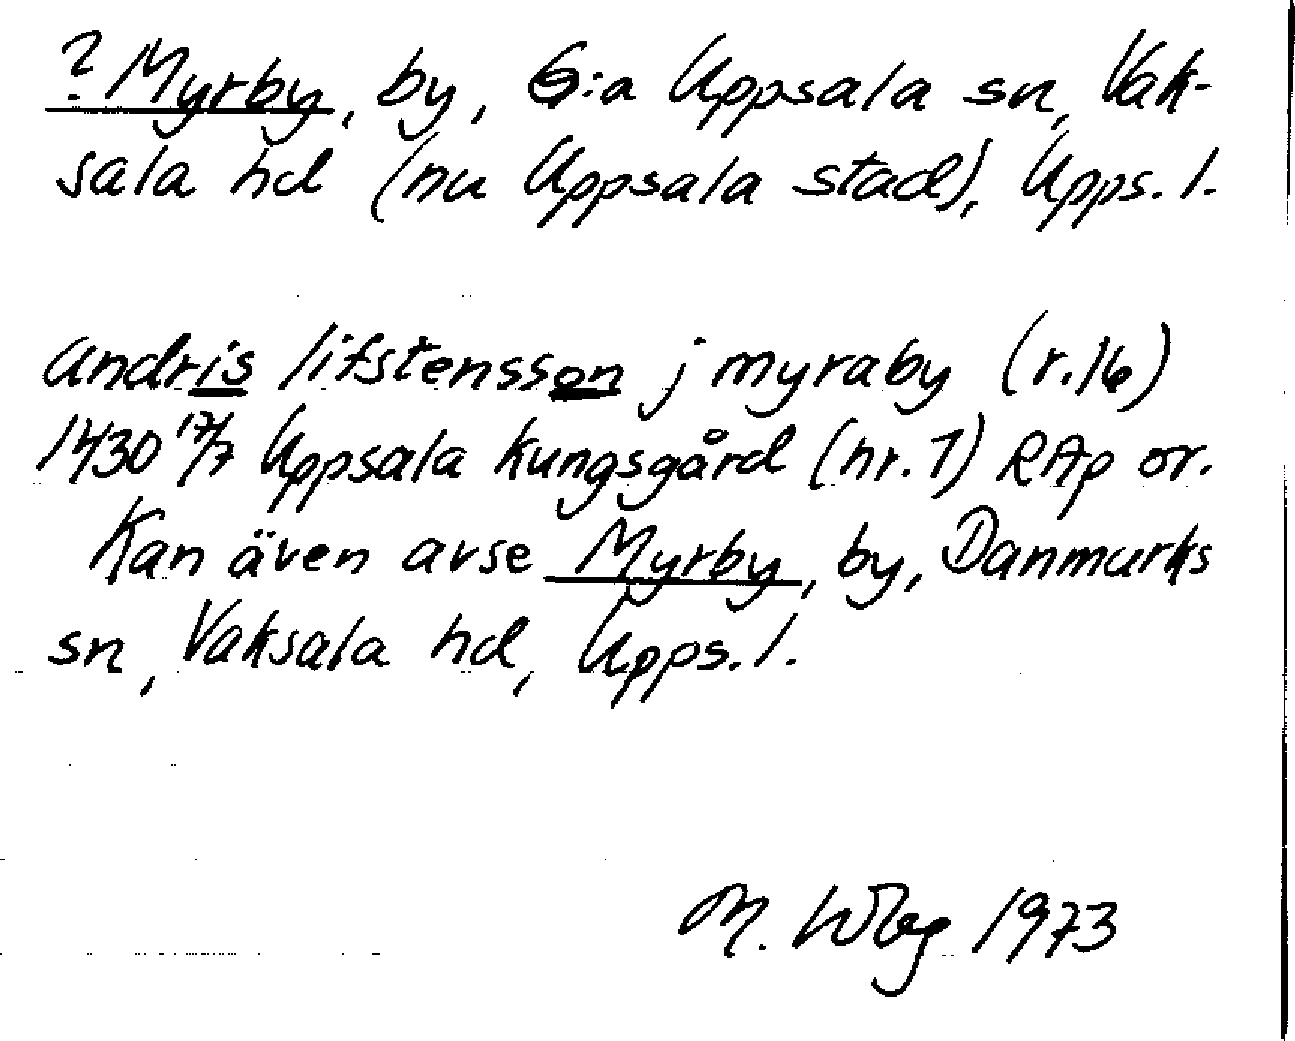 ? Myrby, by, G:a Uppsala sn, Vak-
sala hd (nu Uppsala stad), Upps. l.
Andris lifstensson j myraby (r.16)
1430 17/7 Uppsala kungsgård (nr. 1) RAp or.
Kan även avse Myrby, by, Danmarks
sn, Vaksala hd, Upps. l.
M. 1973